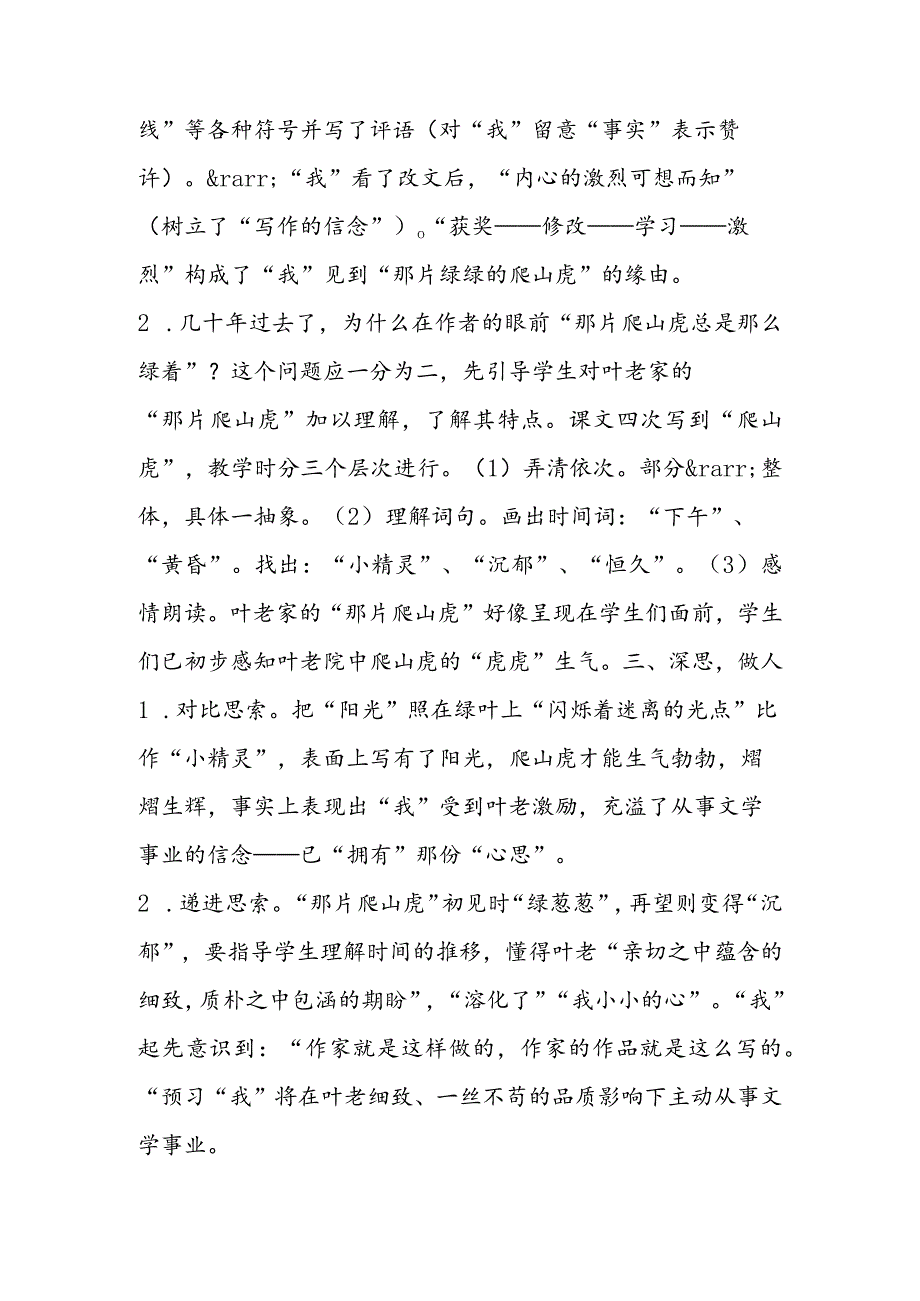 线”等各种符号并写了评语（对“我”留意“事实”表示赞
许）。&rarr;“我”看了改文后，“内心的激烈可想而知”
（树立了“写作的信念”）。“获奖——修改——学习——激
烈”构成了“我”见到“那片绿绿的爬山虎”的缘由。
2 .几十年过去了，为什么在作者的眼前“那片爬山虎总是那么
绿着”？这个问题应一分为二，先引导学生对叶老家的
“那片爬山虎”加以理解，了解其特点。课文四次写到“爬山
虎”，教学时分三个层次进行。（1）弄清依次。部分&rarr;整
体，具体一抽象。（2）理解词句。画出时间词：“下午”、
“黄昏”。找出：“小精灵”、“沉郁”、“恒久”。（3）感
情朗读。叶老家的“那片爬山虎”好像呈现在学生们面前，学生
们已初步感知叶老院中爬山虎的“虎虎”生气。三、深思，做人
1 .对比思索。把“阳光”照在绿叶上“闪烁着迷离的光点”比
作“小精灵”，表面上写有了阳光，爬山虎才能生气勃勃，熠
熠生辉，事实上表现出“我”受到叶老激励，充溢了从事文学
事业的信念——已“拥有”那份“心思”。
2 .递进思索。“那片爬山虎”初见时“绿葱葱”，再望则变得“沉
郁”，要指导学生理解时间的推移，懂得叶老“亲切之中蕴含的
细致，质朴之中包涵的期盼”，“溶化了”“我小小的心”。“我”
起先意识到：“作家就是这样做的，作家的作品就是这么写的。
“预习“我”将在叶老细致、一丝不苟的品质影响下主动从事文
学事业。